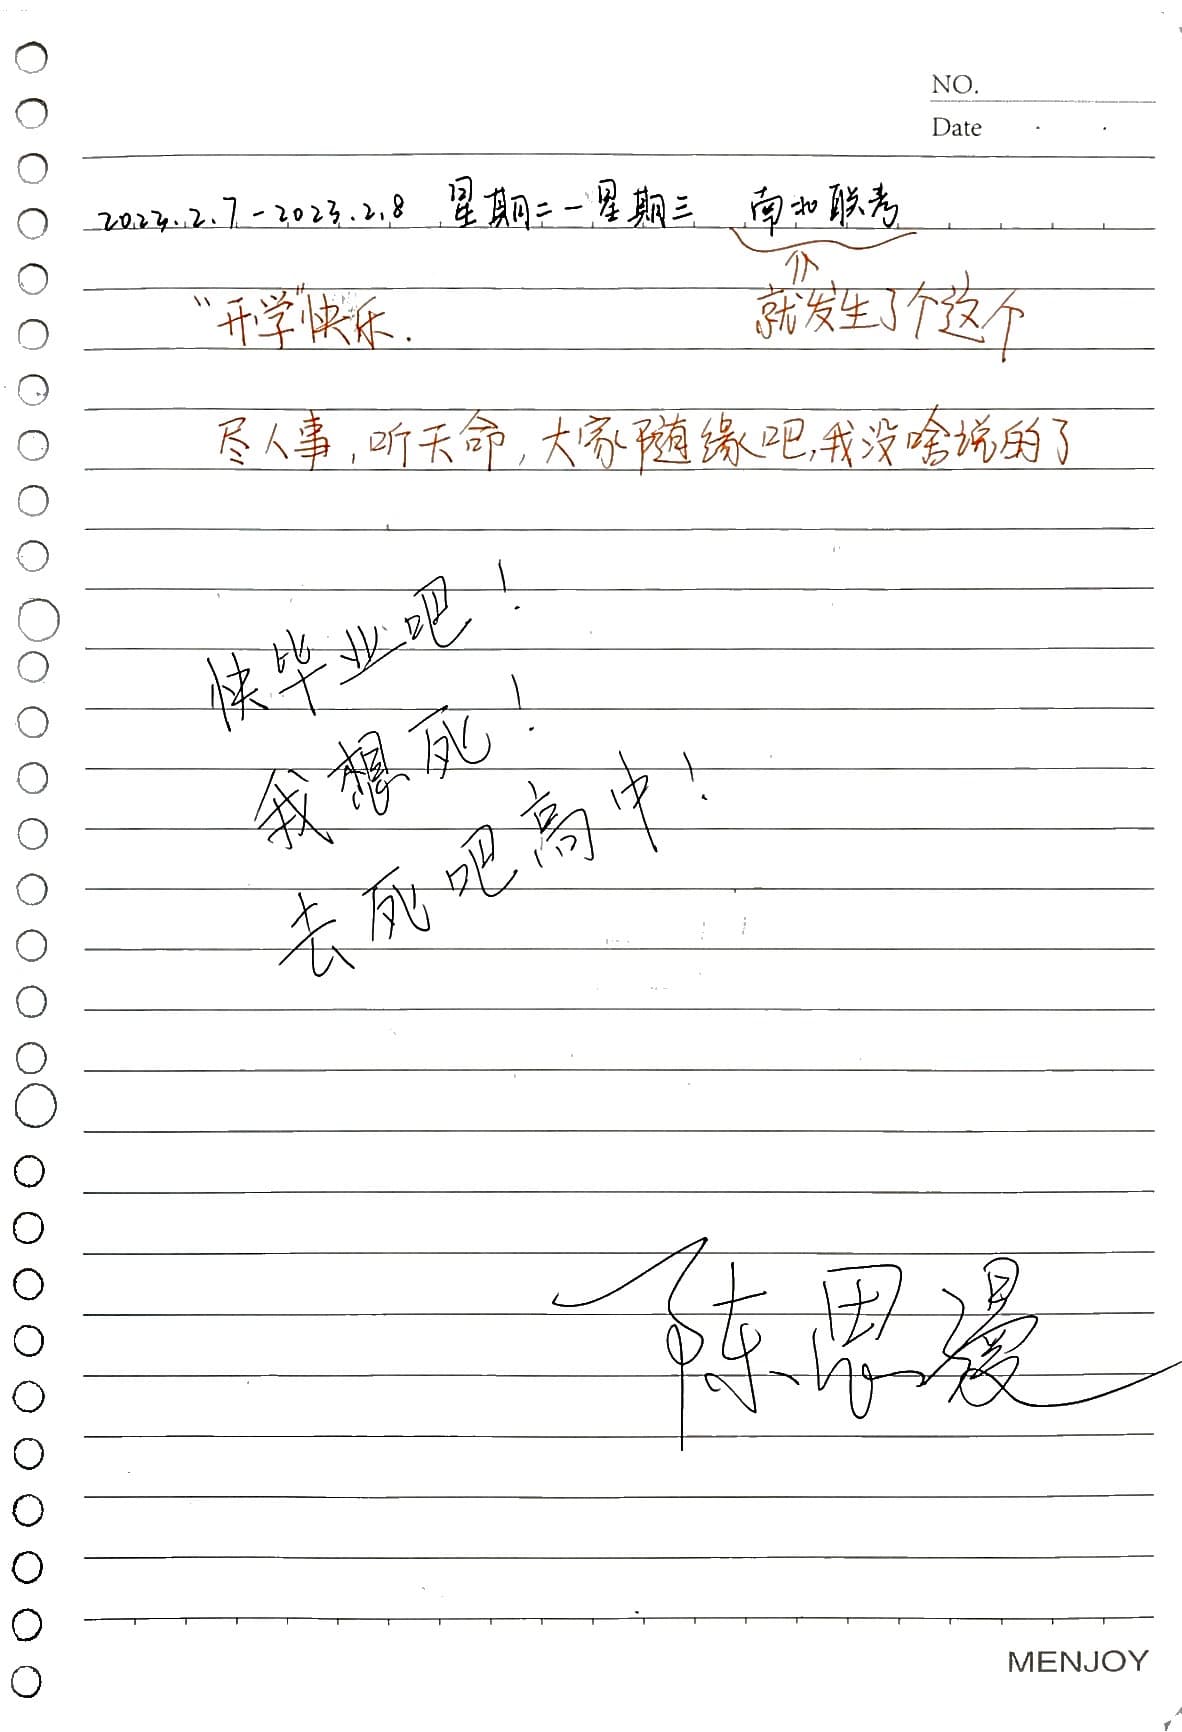 NO.
Date
2023.2.7-2023.2.8 星期二-星期三 南北联考
"开学"快乐. 就发生了个这个
尽人事,听天命,大家随缘吧,我没啥说的了
快毕业吧!
我想死!
去死吧高中!
陈思漫
MENJOY